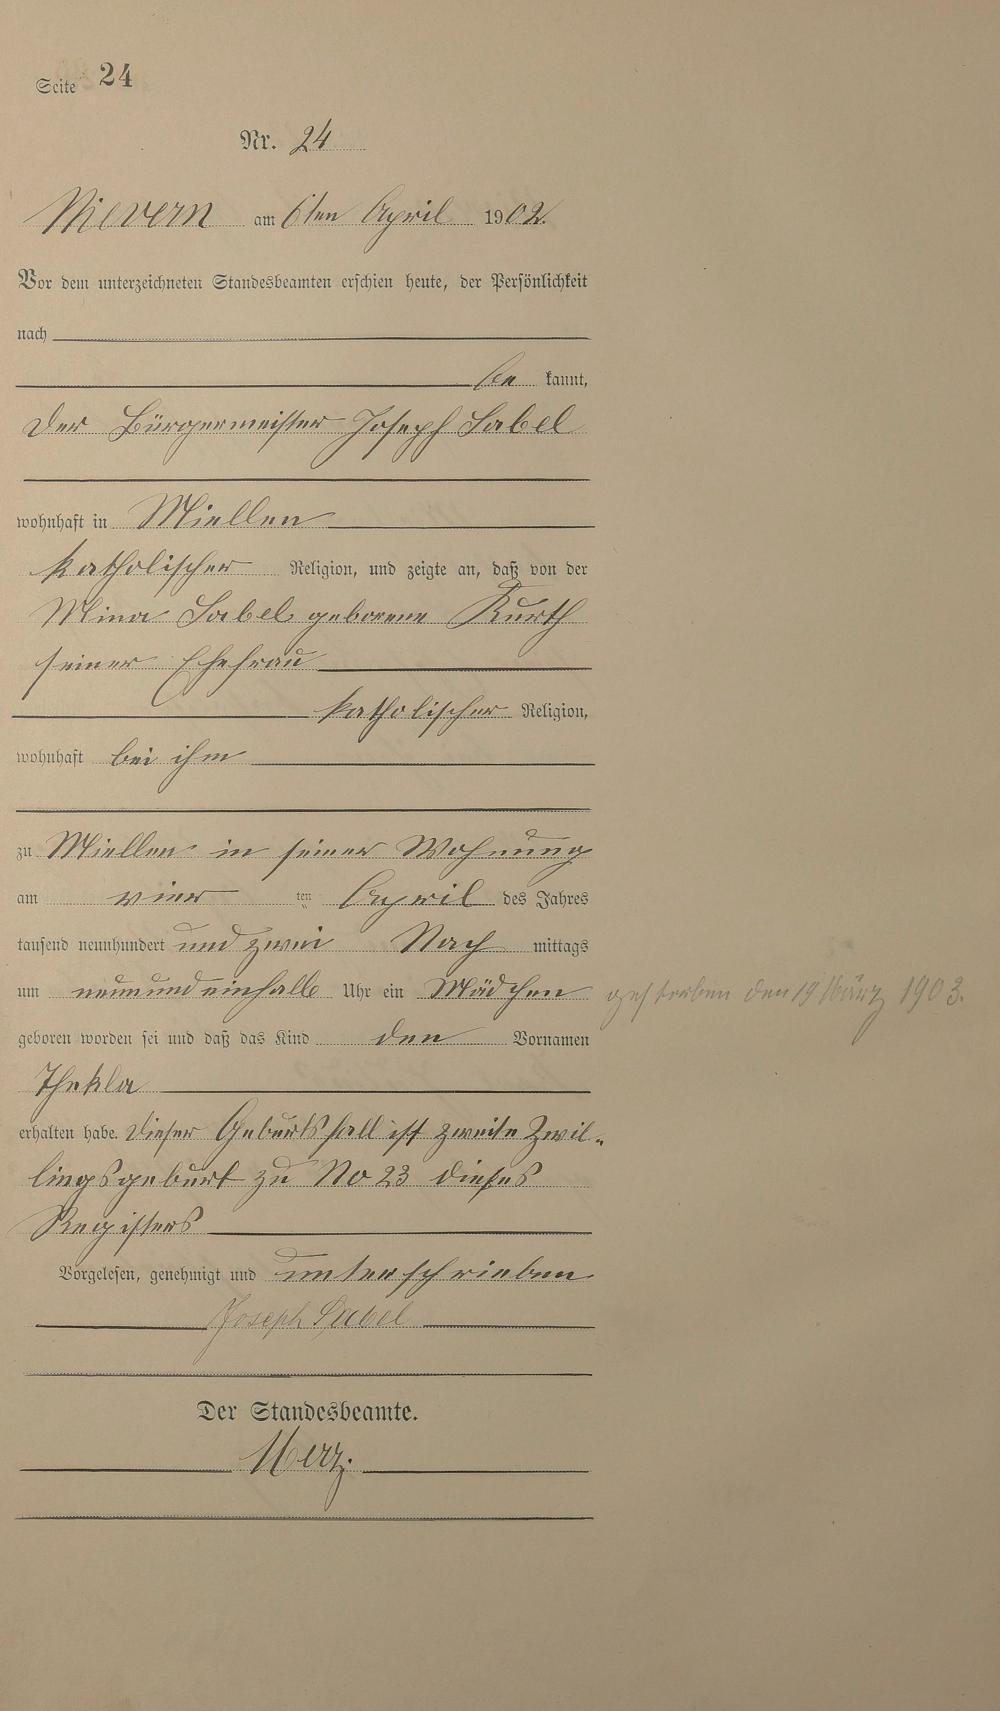 Seite 24
Nr. 24
Nievern am 6ten April 1902.
Vor dem unterzeichneten Standesbeamten erschien heute, der Persönlichkeit
nach
be kannt,
der Bürgermeister Joseph Sabel
wohnhaft in Miellen
katholischer Religion, und zeigte an, daß von der
Mina Sabel geborene Kurth
seiner Ehefrau
katholischer Religion,
wohnhaft bei ihm
zu Miellen in seiner Wohnung
am vier ten April des Jahres
tausend neunhundert und zwei Nach mittags
um neun und einhalb Uhr ein Mädchen
gestorben den 19 März 1903.
geboren worden sei und daß das Kind den Vornamen
Thekla
erhalten habe. Dieser Geburtsfall ist zweite Zwil-
lingsgeburt zu No 23 dieses
Registers
Vorgelesen, genehmigt und unterschrieben
Joseph Sabel
Der Standesbeamte.
Merz.